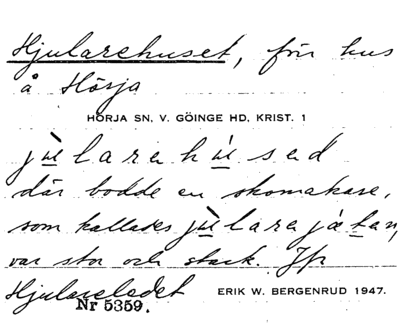 Hjularehuset, för hus
å Hörja
HÖRJA SN, V. GÖINGE HD, KRIST. 1
jùlarehúsed
där bodde en skomakare,
som kallades jùlarejätan,
var stor och stark. Jfr
Hjulareledet ERIK W. BERGENRUD 1947.
Nr 5359.